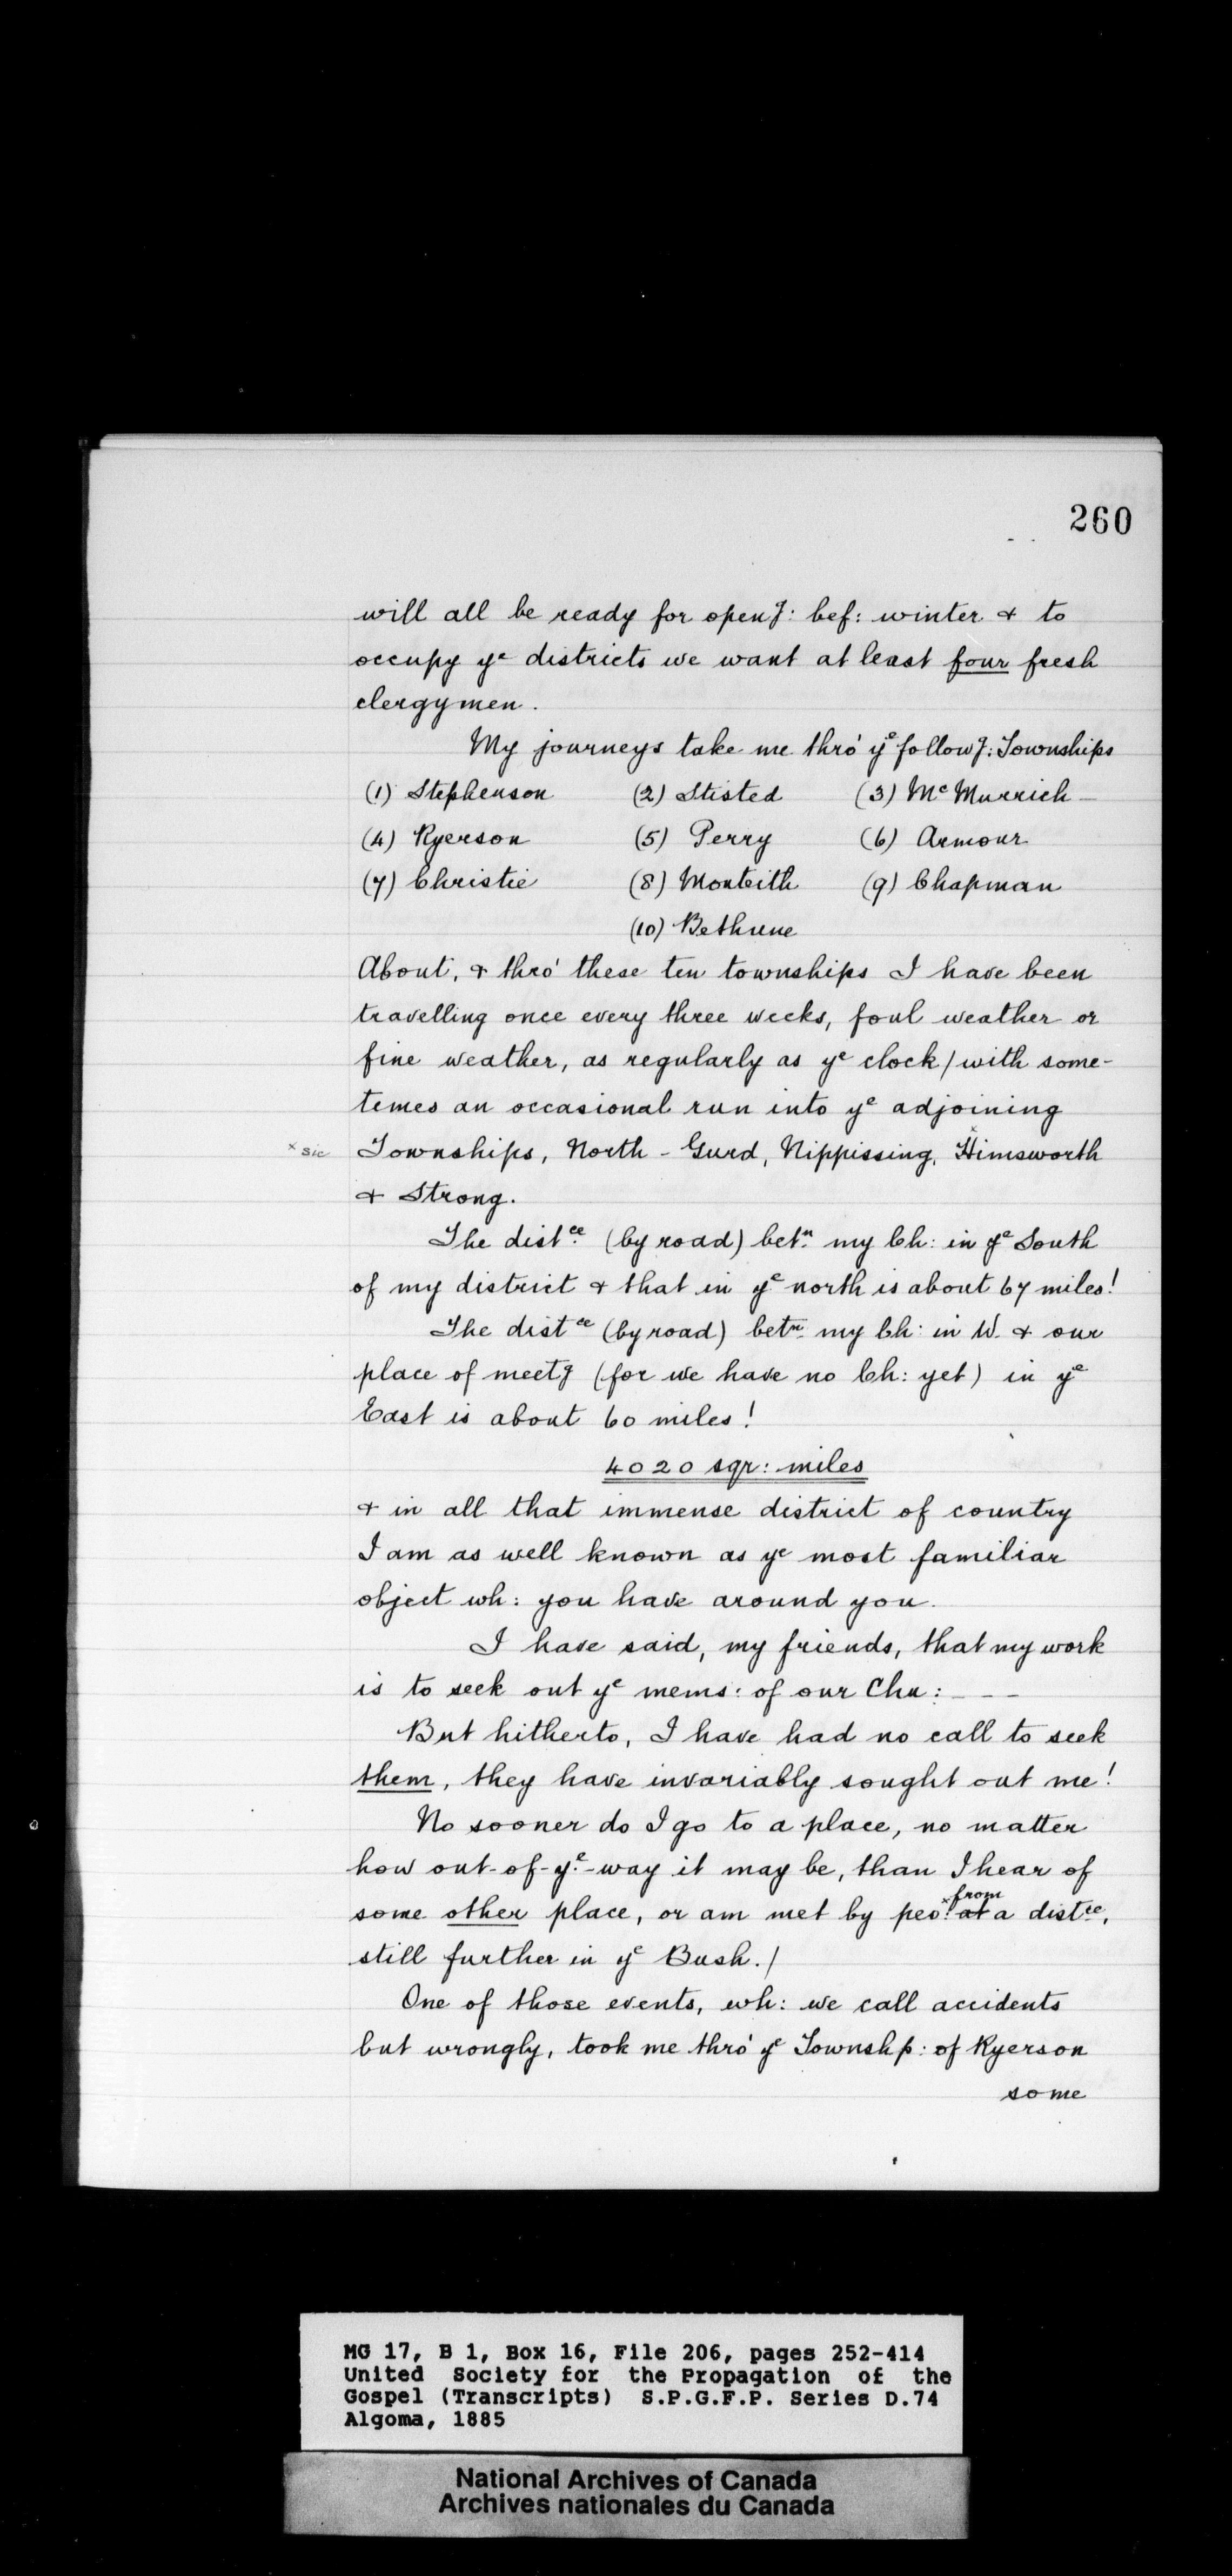 260
will all be ready for openg: bef: winter & to
occupy ye districts we want at least four fresh
clergymen.
My journeys take me thro' ye followg: Townships
(1) Stephenson (2) Stisted (3) Mc Murrich -
(4) Ryerson (5) Perry (6) Armour
(7) Christie (8) Monteith (9) Chapman
(10) Bethune
About, & thro' these ten townships I have been
travelling once every three weeks, foul weather or
fine weather, as regularly as ye clock / with some-
temes an occasional run into ye adjoining
x sic Townships, North - Gurd, Nippissing, Himsworth
& Strong.
The distce (by road) betn my Ch: in ye South
of my district & that in ye north is about 67 miles!
The distce (by road) betn my Ch: in W. & our
place of meetg (for we have no Ch: yet) in ye
East is about 60 miles!
4020 sqr: miles
& in all that immense district of country
I am as well known as ye most familiar
object wh: you have around you.
I have said, my friends, that my work
is to seek out ye mems: of our Chu: - - -
But hitherto, I have had no call to seek
them, they have invariably sought out me!
No sooner do I go to a place, no matter
how out-of-ye-way it may be, than I hear of
some other place, or am met by peo: x from at a distce,
still further in ye Bush. /
One of those events, wh: we call accidents
but wrongly, took me thro' ye Townshp: of Ryerson
some
MG 17, B 1, Box 16, File 206, pages 252-414
United Society for the Propagation of the
Gospel (Transcripts) S.P.G.F.P. Series D.74
Algoma, 1885
National Archives of Canada
Archives nationales du Canada